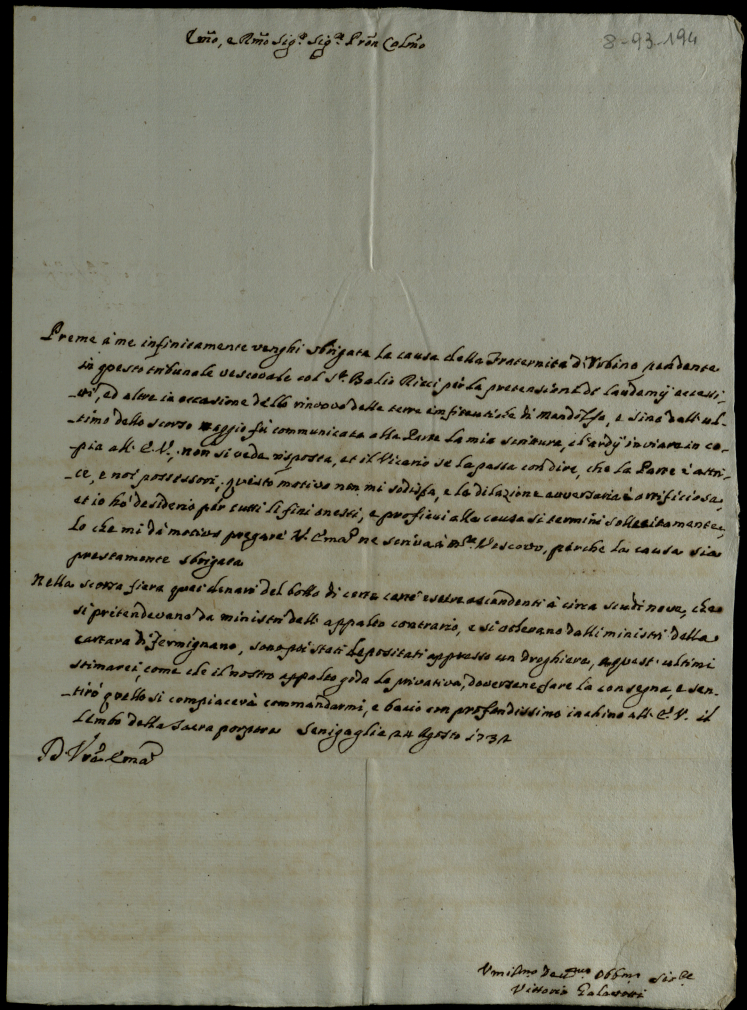 Emo, e Rmo Sigr. Sigr. Pron Colmo
8-93-194
Preme à me infinitamente venghi sbrigata la causa della Fraternita di Urbino pendente
in questo tribunale vescovale col Sr. Balio Ricci per la pretensione di laudemij eccessi-
-vi, ed altre in occasione dello rinuovo delle terre emfiteutiche di Mondolfo, e sino dall'ul-
-timo dello scorso maggio fu communicata alla Parte la mia scrittura, ch'ardij inviare in co-
-pia all'E.V., non si vede risposta, et il Vicario se la passa con dire, che la Parte è attri-
-ce, e noi possessori; questo motivo non mi sodisfa, e la dilazione avversaria è artificiosa,
et io hò desiderio per tutti li fini onesti, e proficui alla causa si termini sollecitamente,
lo che mi dà motivo pregare V. Emza ne scriva à Mr. Vescovo, perche la causa sia
prestamente sbrigata
Nella scorsa fiera quei denari del bollo di certe carte estere ascendenti à circa scudi nove, che
si pretendevano da ministri dell'appalto contrario, e si ottennero dalli ministri della
cartara di Fermignano, sono poi stati depositati appresso un droghiere, a quest'ultimi
stimarei, come che il nostro appalto goda la privativa, doversene fare la consegna, e sen-
-tirò quello si compiacerà commandarmi, e bacio con profondissimo inchino all'E.V. il
Lembo della Sacra porpora Senigaglia 24 Agosto 1732
D V'ra Emza
Umilmo Devmo Obbmo Serre
Vittorio Palaz